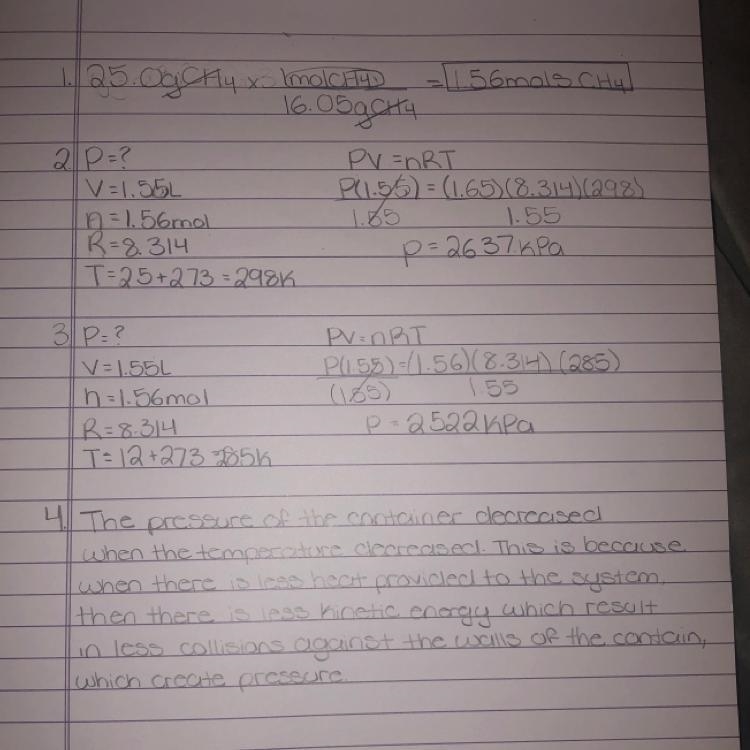 1. 25.0gCH4 x 1mol CH4 = 1.56mols CH4
16.05gCH4
2 P=? PV=nRT
V=1.55L P(1.55) = (1.65)(8.314)(298)
n=1.56mol 1.55 1.55
R=8.314 P=2637KPa
T=25+273=298K
3 P=? PV=nRT
V=1.55L P(1.55)=(1.56)(8.314)(285)
n=1.56mol (1.55) 1.55
R=8.314 P=2522KPa
T=12+273=285K
4. The pressure of the container decreased
when the temperature decreased. This is because
when there is less heat provided to the system,
then there is less kinetic energy which result
in less collisions against the walls of the contain,
which create pressure.